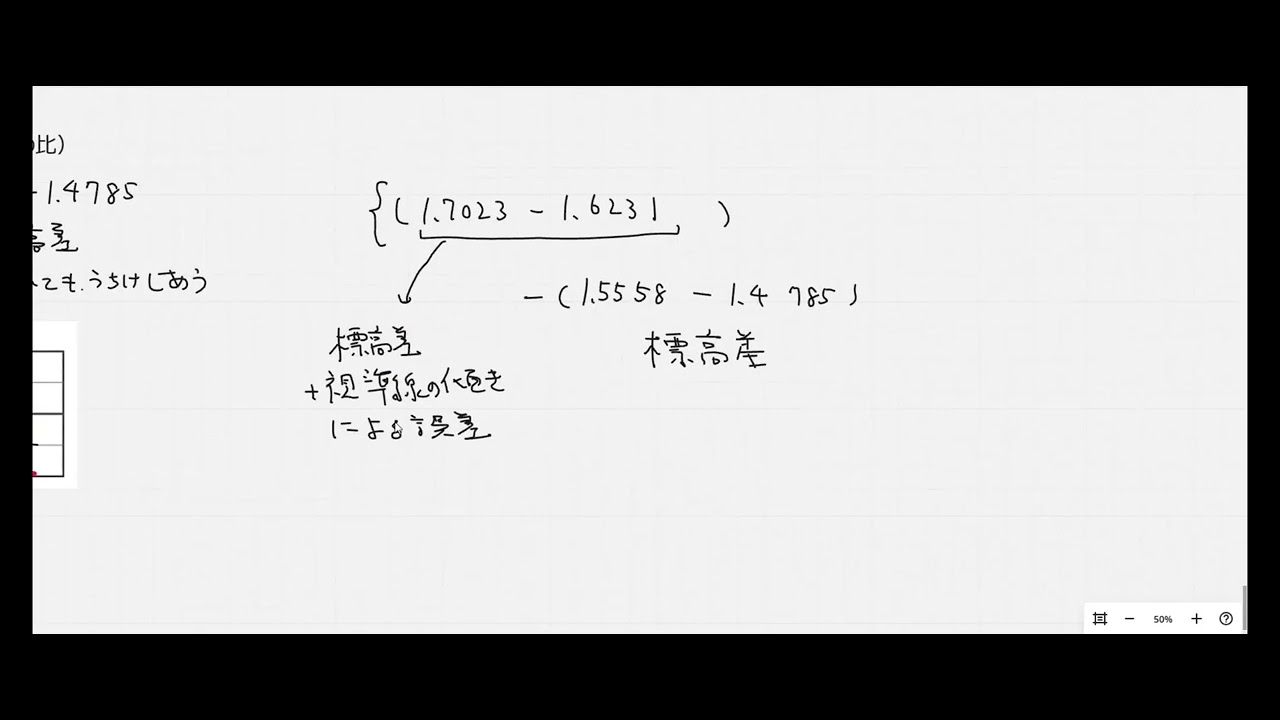 比)
1.4785
高差
ても.うちけしあう
{(1.7023 - 1.6231 )
- (1.5558 - 1.4785)
標高差
+視準線の傾き
による誤差
標高差
50%